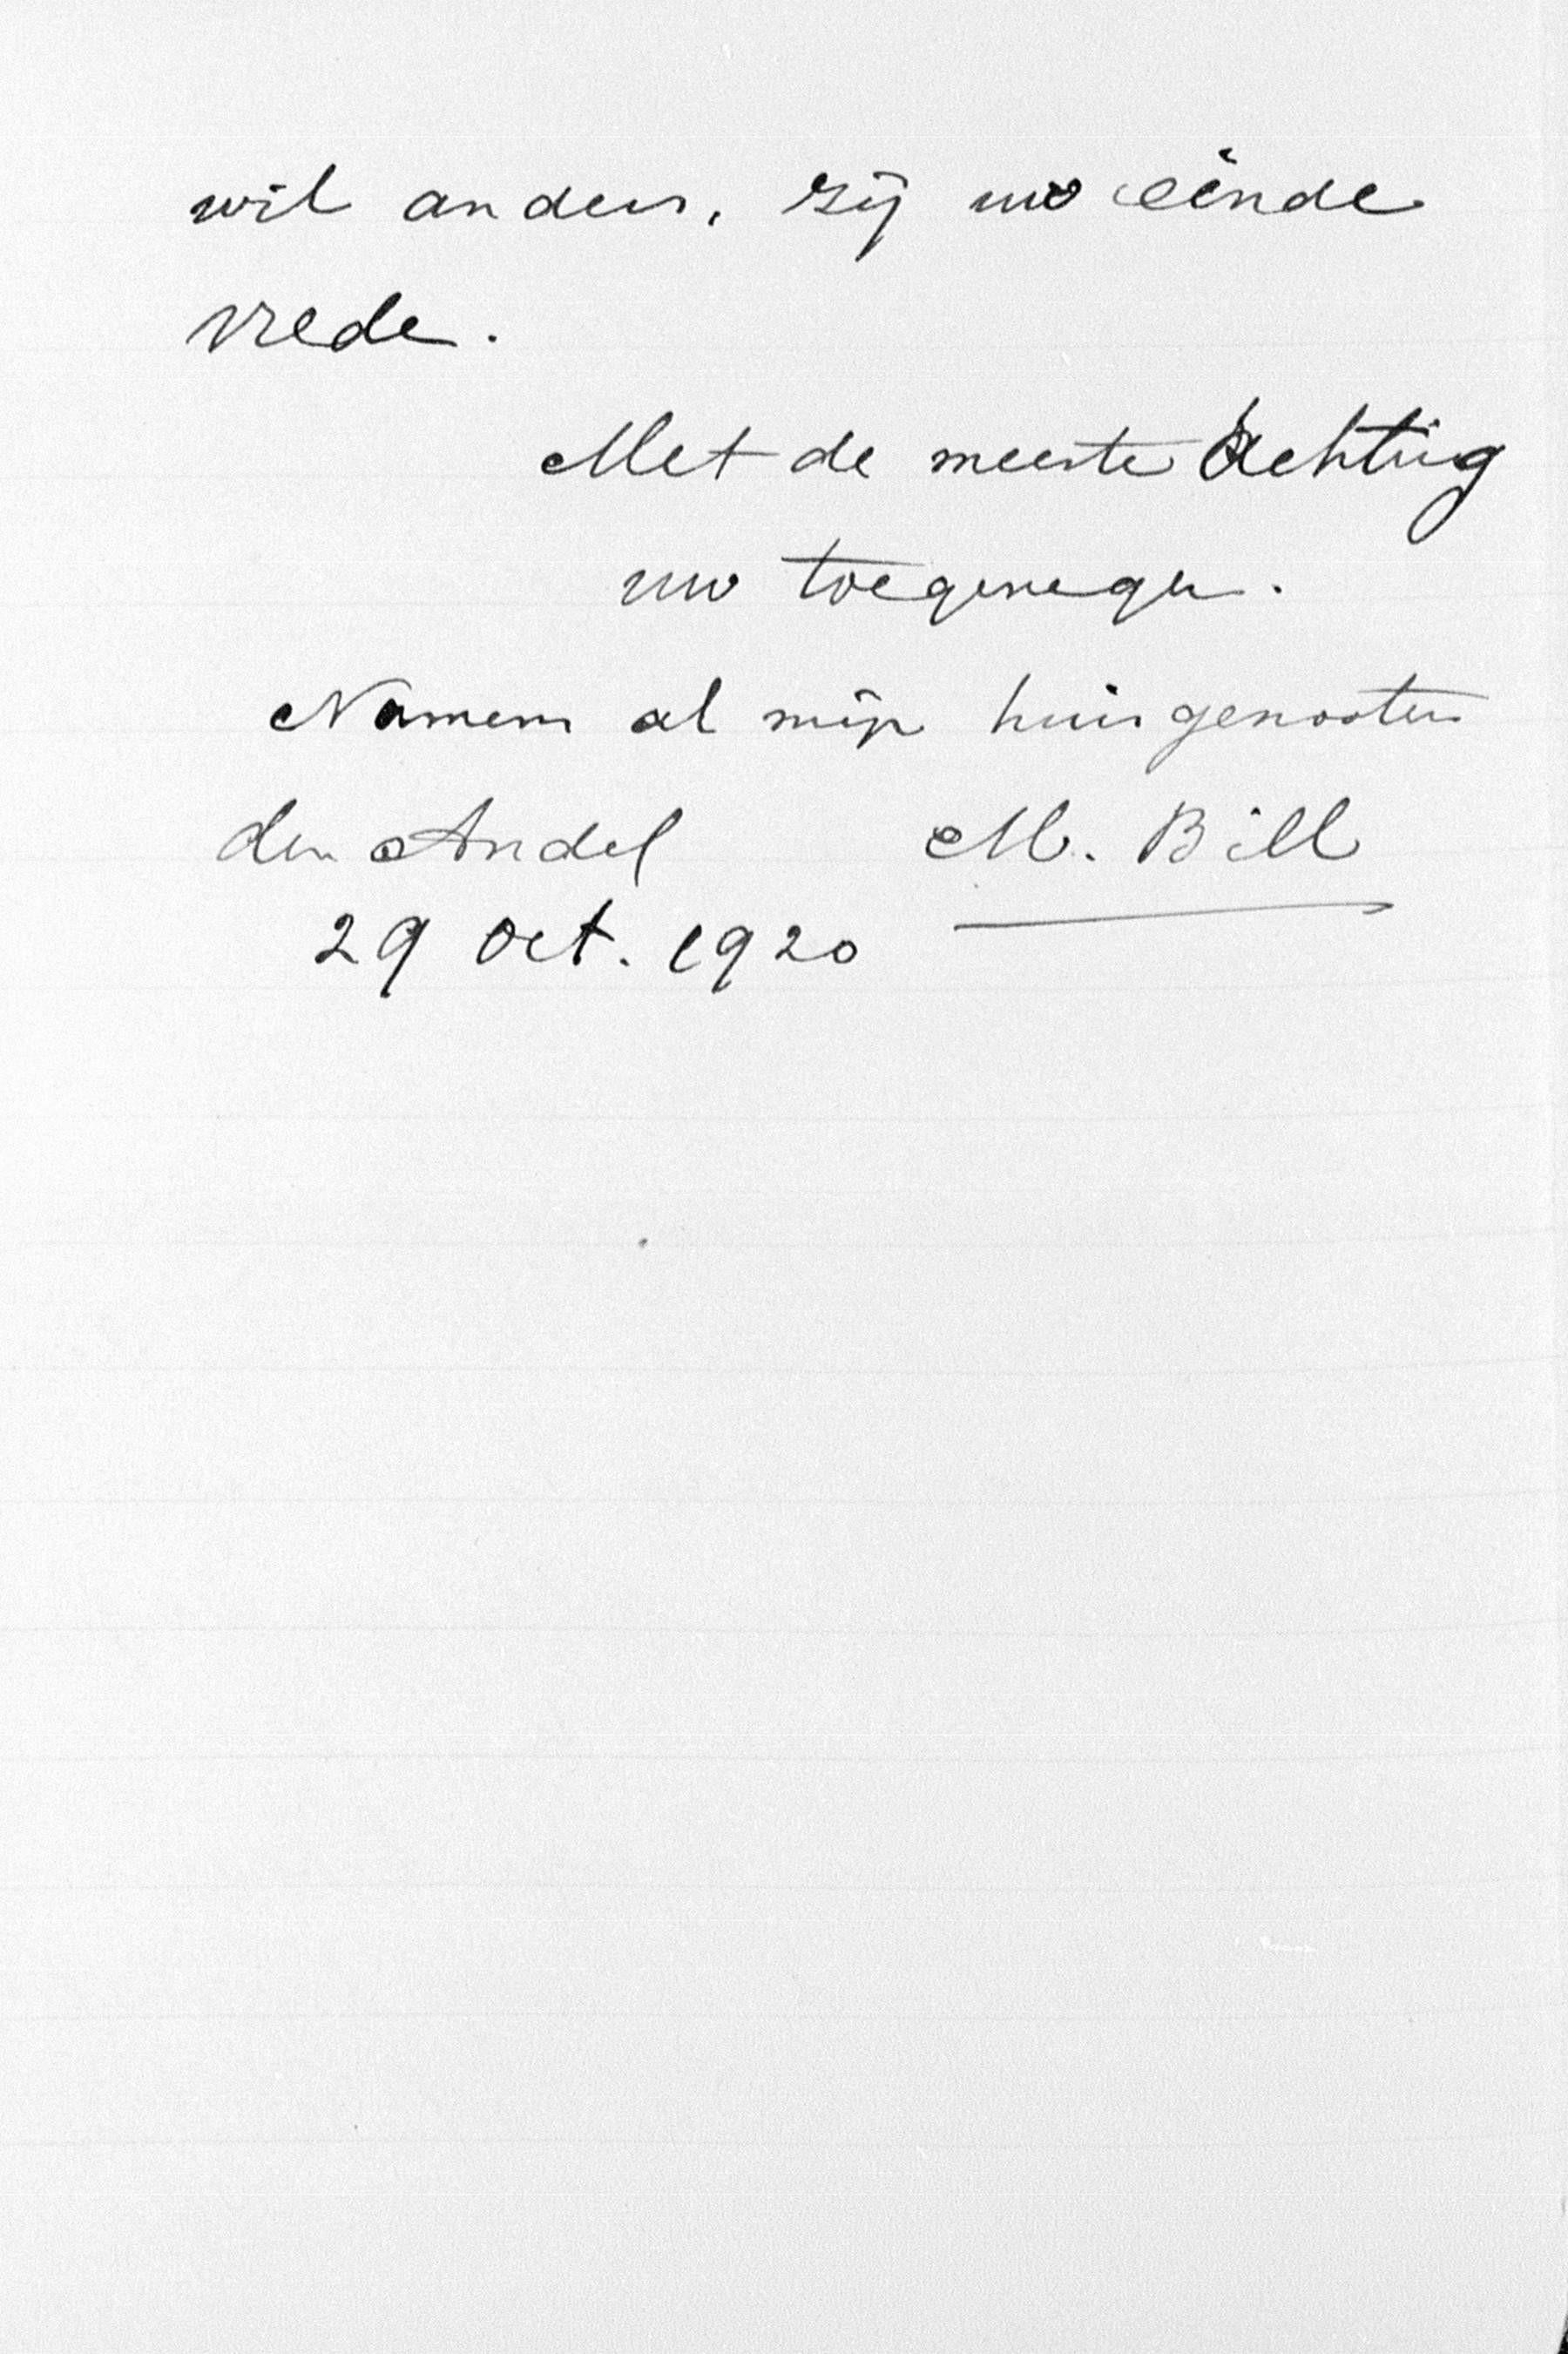 wil anders, zij uw einde
vrede.
Met de meeste Achting
uw toegenegen.
Namens al mijn huisgenooten
den Andel M. Bill
29 Oct. 1920